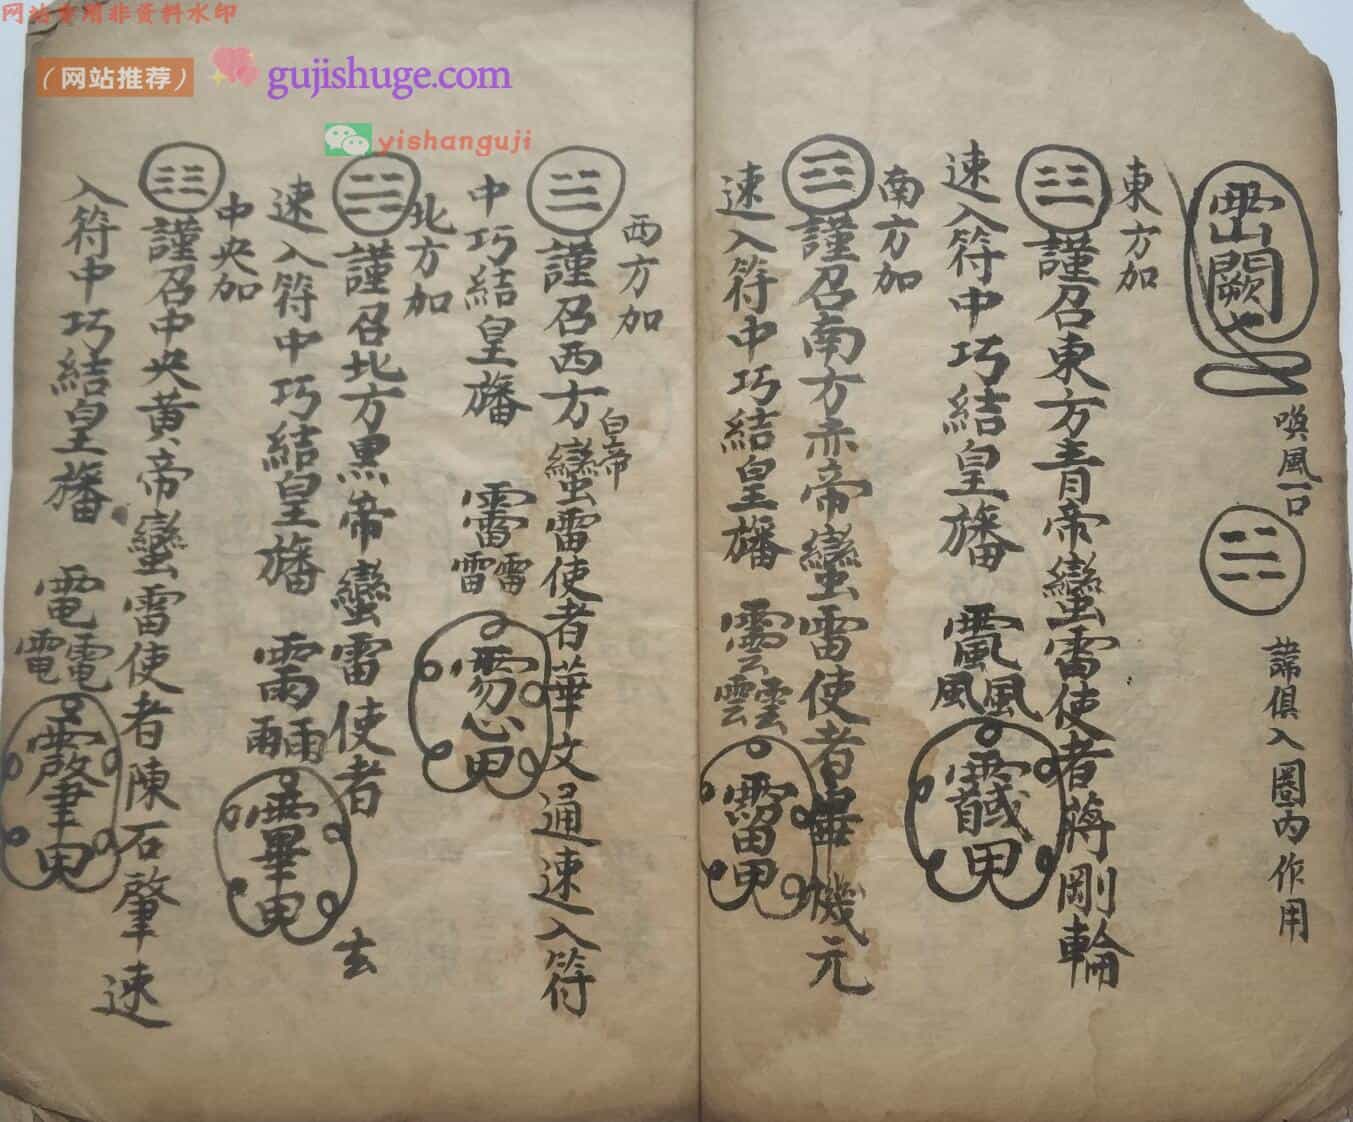 网站专用非资料水印
（网站推荐）
gujishuge.com
yishanguji
喚風一口
諱俱入圈内作用
東方加
謹召東方青帝蠻雷使者蔣剛輪
速入符中巧結皇旛
南方加
謹召南方赤帝蠻雷使者畢機元
速入符中巧結皇旛
西方加
謹召西方白帝蠻雷使者華文通速入符
中巧結皇旛
北方加
謹召北方黑帝蠻雷使者
速入符中巧結皇旛
中央加
謹召中央黄帝蠻雷使者陳石肇速
入符中巧結皇旛